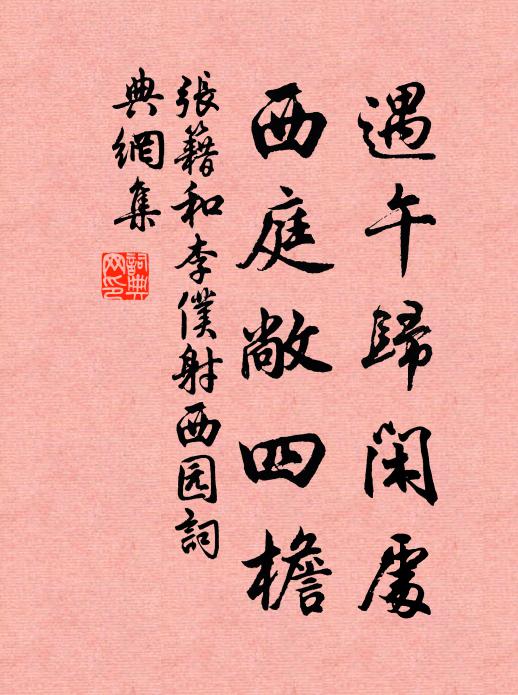 遇午歸閑處
西庭敞四檐
張籍和李僕射西园詞
典網集
詞典網印